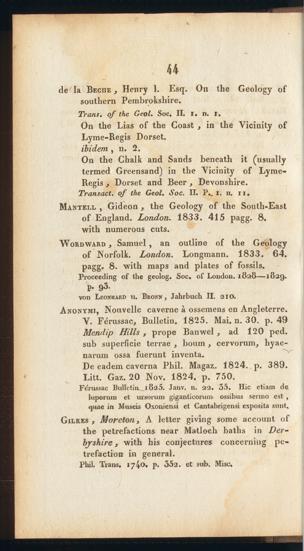 44
de la BECHE, Henry l. Esq. On the Geology of
southern Pembrokshire.
Trans. of the Geol. Soc. II. 1. n. 1.
On the Lias of the Coast, in the Vicinity of
Lyme-Regis Dorset.
ibidem, n. 2.
On the Chalk and Sands beneath it (usually
termed Greensand) in the Vicinity of Lyme-
Regis, Dorset and Beer, Devonshire.
Transact. of the Geol. Soc. II. P. 1. n. 11.
MANTELL, Gideon, the Geology of the South-East
of England. London. 1833. 415 pagg. 8.
with numerous cuts.
WORDWARD, Samuel, an outline of the Geology
of Norfolk. London. Longmann. 1833. 64.
pagg. 8. with maps and plates of fossils.
Proceeding of the geolog. Soc. of London. 1828—1829.
p. 93.
von LEONHARD u. BRONN, Jahrbuch II. 210.
ANONYMI, Nouvelle caverne à ossemens en Angleterre.
V. Férussac, Bulletin, 1825. Mai. n. 30. p. 49
Mendip Hills, prope Banwel, ad 120 ped.
sub superficie terrae, boum, cervorum, hyae-
narum ossa fuerunt inventa.
De eadem caverna Phil. Magaz. 1824. p. 389.
Litt. Gaz. 20 Nov. 1824. p. 750.
Férussac Bulletin 1825. Janv. n. 22. 33. Hic etiam de
luporum et ursorum giganticorum ossibus sermo est,
quae in Museis Oxoniensi et Cantabrigensi exposita sunt.
GILKES, Moreton, A letter giving some account of
the petrefactions near Matloch baths in Der-
byshire, with his conjectures concerning pe-
trefaction in general.
Phil. Trans. 1740. p. 352. et sub. Misc.